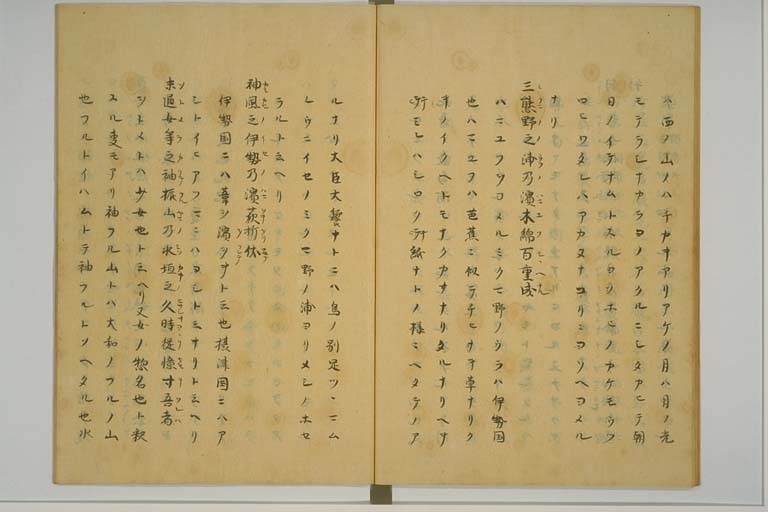 ハ西ノ山ノハチカキアリアケノ月ハ月ノ光
モテラシナカラヨノアクルニシタカヒテ朝
日ノイテナムトスル
ナリ
三熊野之浦乃濱木綿百重成
ハマユフヲヨメルミクマ野ノウラハ伊勢国
也ハマユフハ芭蕉ニ似テチヒサキ草ナリク
キノイクヘトモナクカサナリタルナリヘナ
テモヒハシロク紙ナトノ様ニヘタテノア
ルナリ大臣大饗ナトニハ鳥ノ別足ツヽム
レウニイセノミクマ野ノ浦ヨリメシノホセ
ラルト云ヘリ
神風之伊勢乃濱荻折伏
伊勢国ニハ葦ヲ濱ヲキト云也摂津国ニハア
シトイヒアツマニハヨシト云ナリト云ヘリ
未通女等之袖振山乃水垣之久時従憶寸吾者
ヲトメトハ少女也ト云ヘリ又女ノ惣名也ト釈
スル事モアリ袖フル山トハ大和ノフルノ山
也フルトイハムトテ袖フルトソヘタル也水